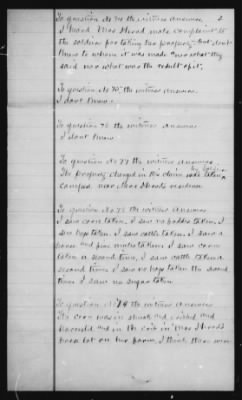 To question No 74 the witness answers 2
I heard Mrs Stroud make complaint to
the soldiers for taking this property, but dont
know to whom it was made nor what they
said nor what was the result of it.
To question No 75 the witness answers
I dont know.
To question 76 the witness answers
I dont know.
To question No 77 the witness answers
The property charged in the claim was taken
Camped near Mrs Strouds residence
To question No 78 the witness answers
I saw corn taken, I saw no fodder taken, I
saw hogs taken, I saw cattle taken, I saw a
horse and five mules taken. I saw corn
taken a second time, I saw cattle taken a
second time. I saw no hogs taken the second
time. I saw no sugar taken.
To question No 79 the witness answers
The corn was in shuck and cribbed and
and in the crib in Mrs Strouds
horse lot on her farm, I think there were